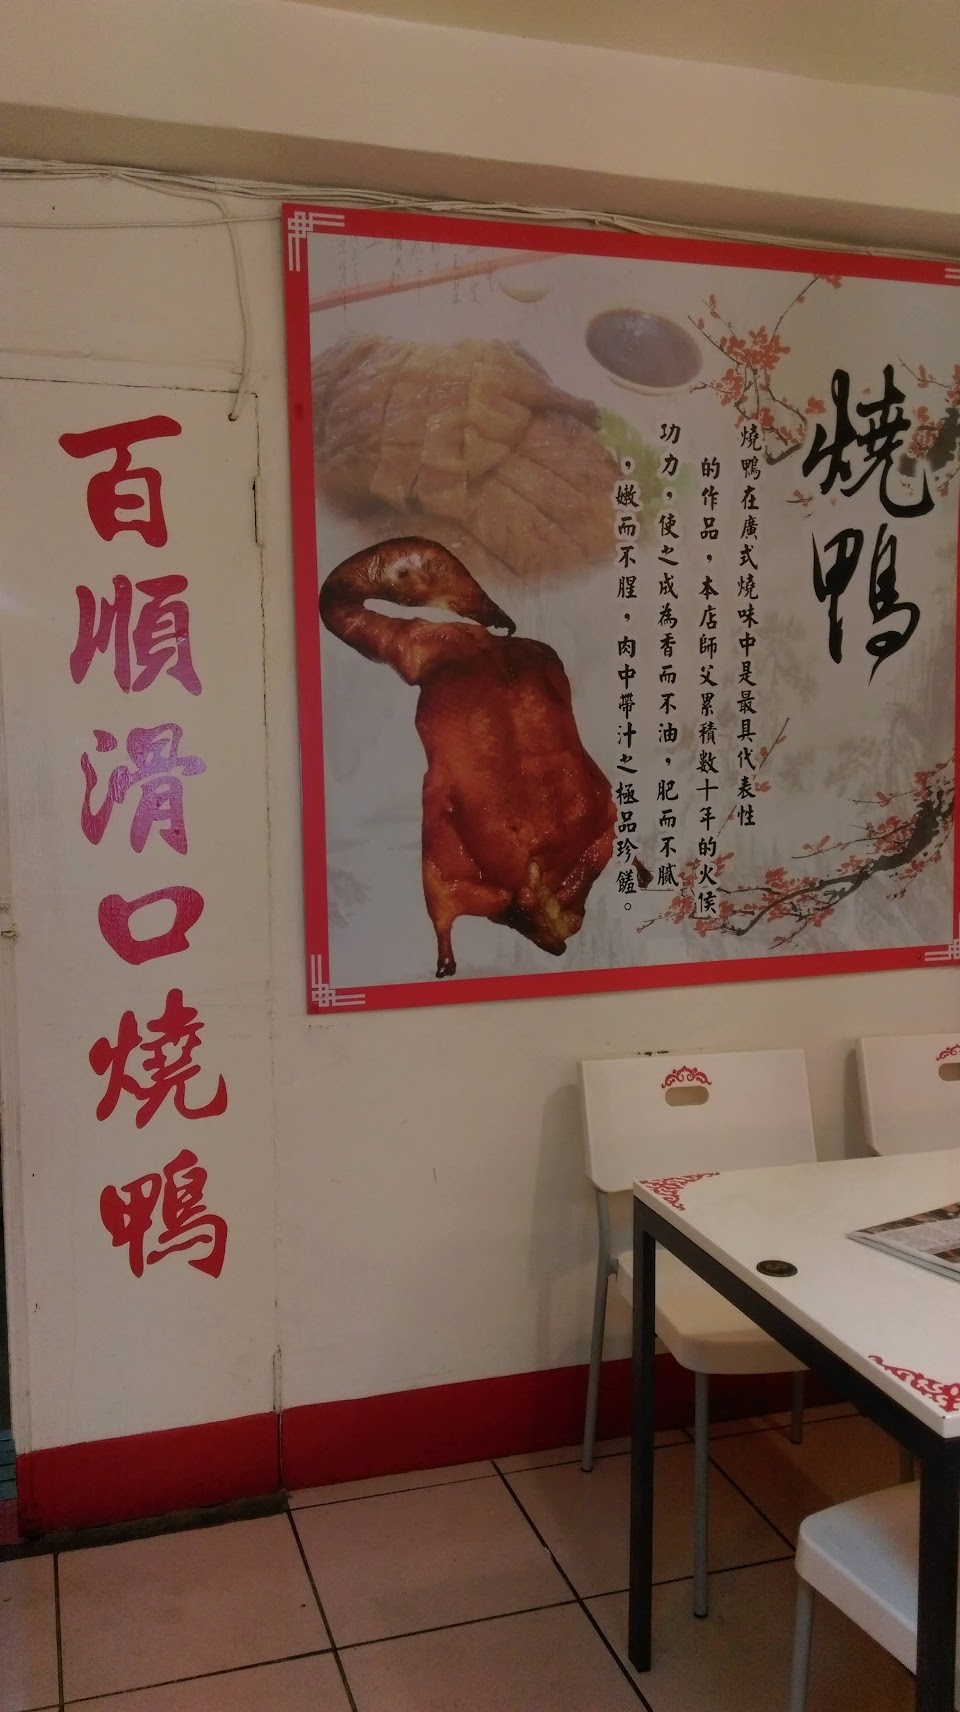 燒鴨
燒鴨在廣式燒味中是最具代表性
的作品，本店師父累積數十年的火侯
功力，使之成為香而不油，肥而不膩
，嫩而不腥，肉中帶汁之極品珍饈。
百順滑口燒鴨